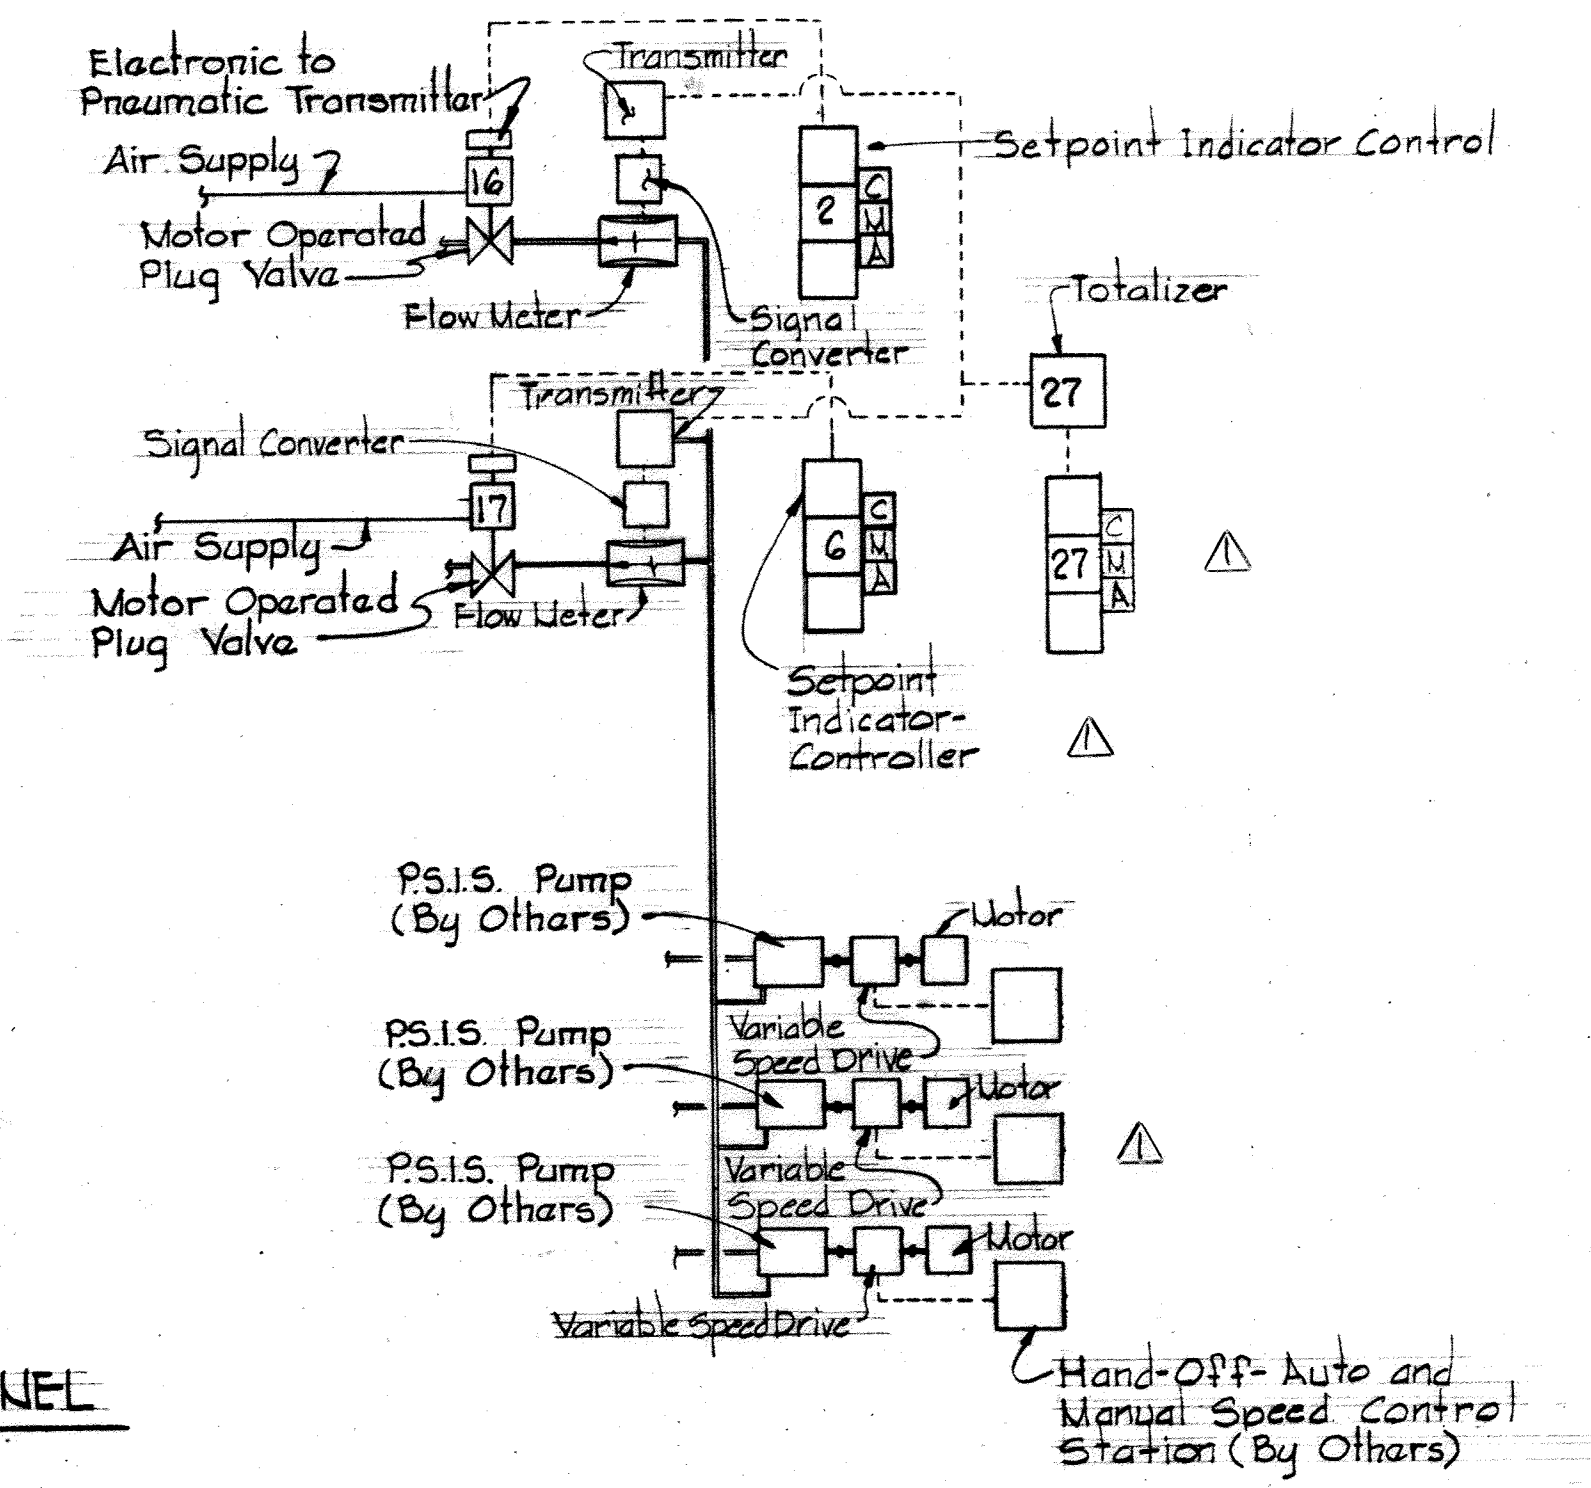 Electronic to
Pneumatic Transmitter
Transmitter
Air Supply
16
Setpoint Indicator Control
2
C
M
A
Motor Operated
Plug Valve
Flow Meter
Signal
Converter
Totalizer
27
Transmitter
Signal Converter
17
Air Supply
Motor Operated
Plug Valve
Flow Meter
6
C
M
A
27
C
M
A
1
Setpoint
Indicator-
Controller
1
P.S.I.S. Pump
(By Others)
Motor
Variable
Speed Drive
P.S.I.S. Pump
(By Others)
Motor
1
Variable
Speed Drive
P.S.I.S. Pump
(By Others)
Motor
Variable Speed Drive
Hand-Off-Auto and
Manual Speed Control
Station (By Others)
NEL